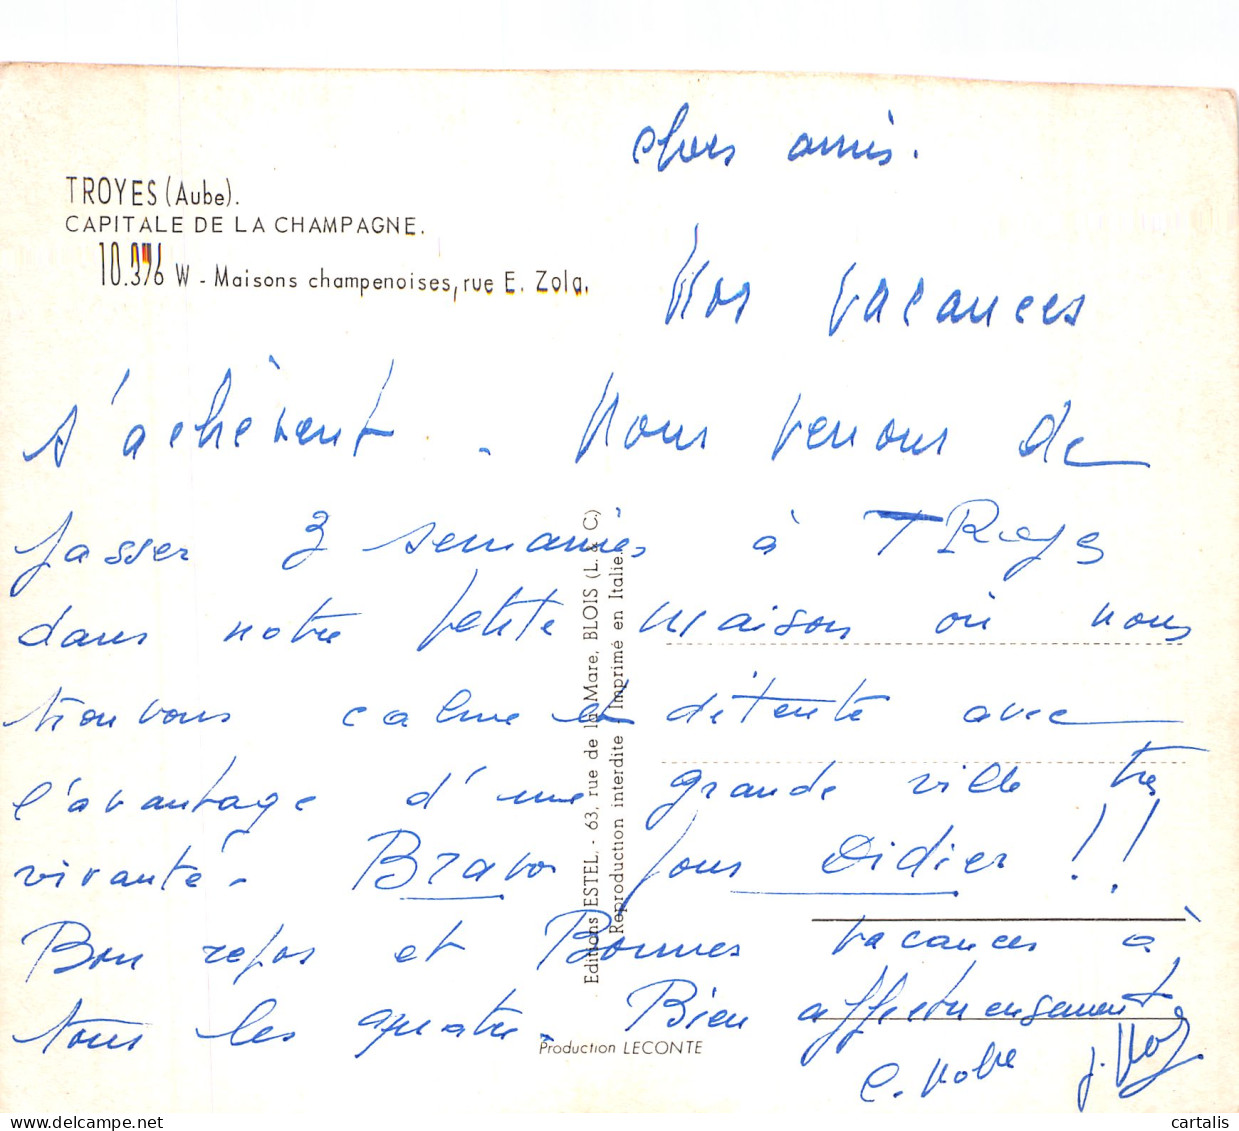 TROYES (Aube).
CAPITALE DE LA CHAMPAGNE.
10.376 W - Maisons champenoises, rue E. Zola.
chers amis.
Nos vacances
s'achèvent. Nous venons de
passer 3 semaines à TRoyes
dans notre petite maison où nous
trouvons calme et détente avec
l'avantage d'une grande ville très
vivante. Bravo pour Didier !!
Bon repos et Bonnes vacances à
tous les quatre. Bien affectueusement
C.
J.
Editions ESTEL. - 63, rue de la Mare, BLOIS (L. & C.)
Reproduction interdite - Imprimé en Italie.
Production LECONTE
cartalis